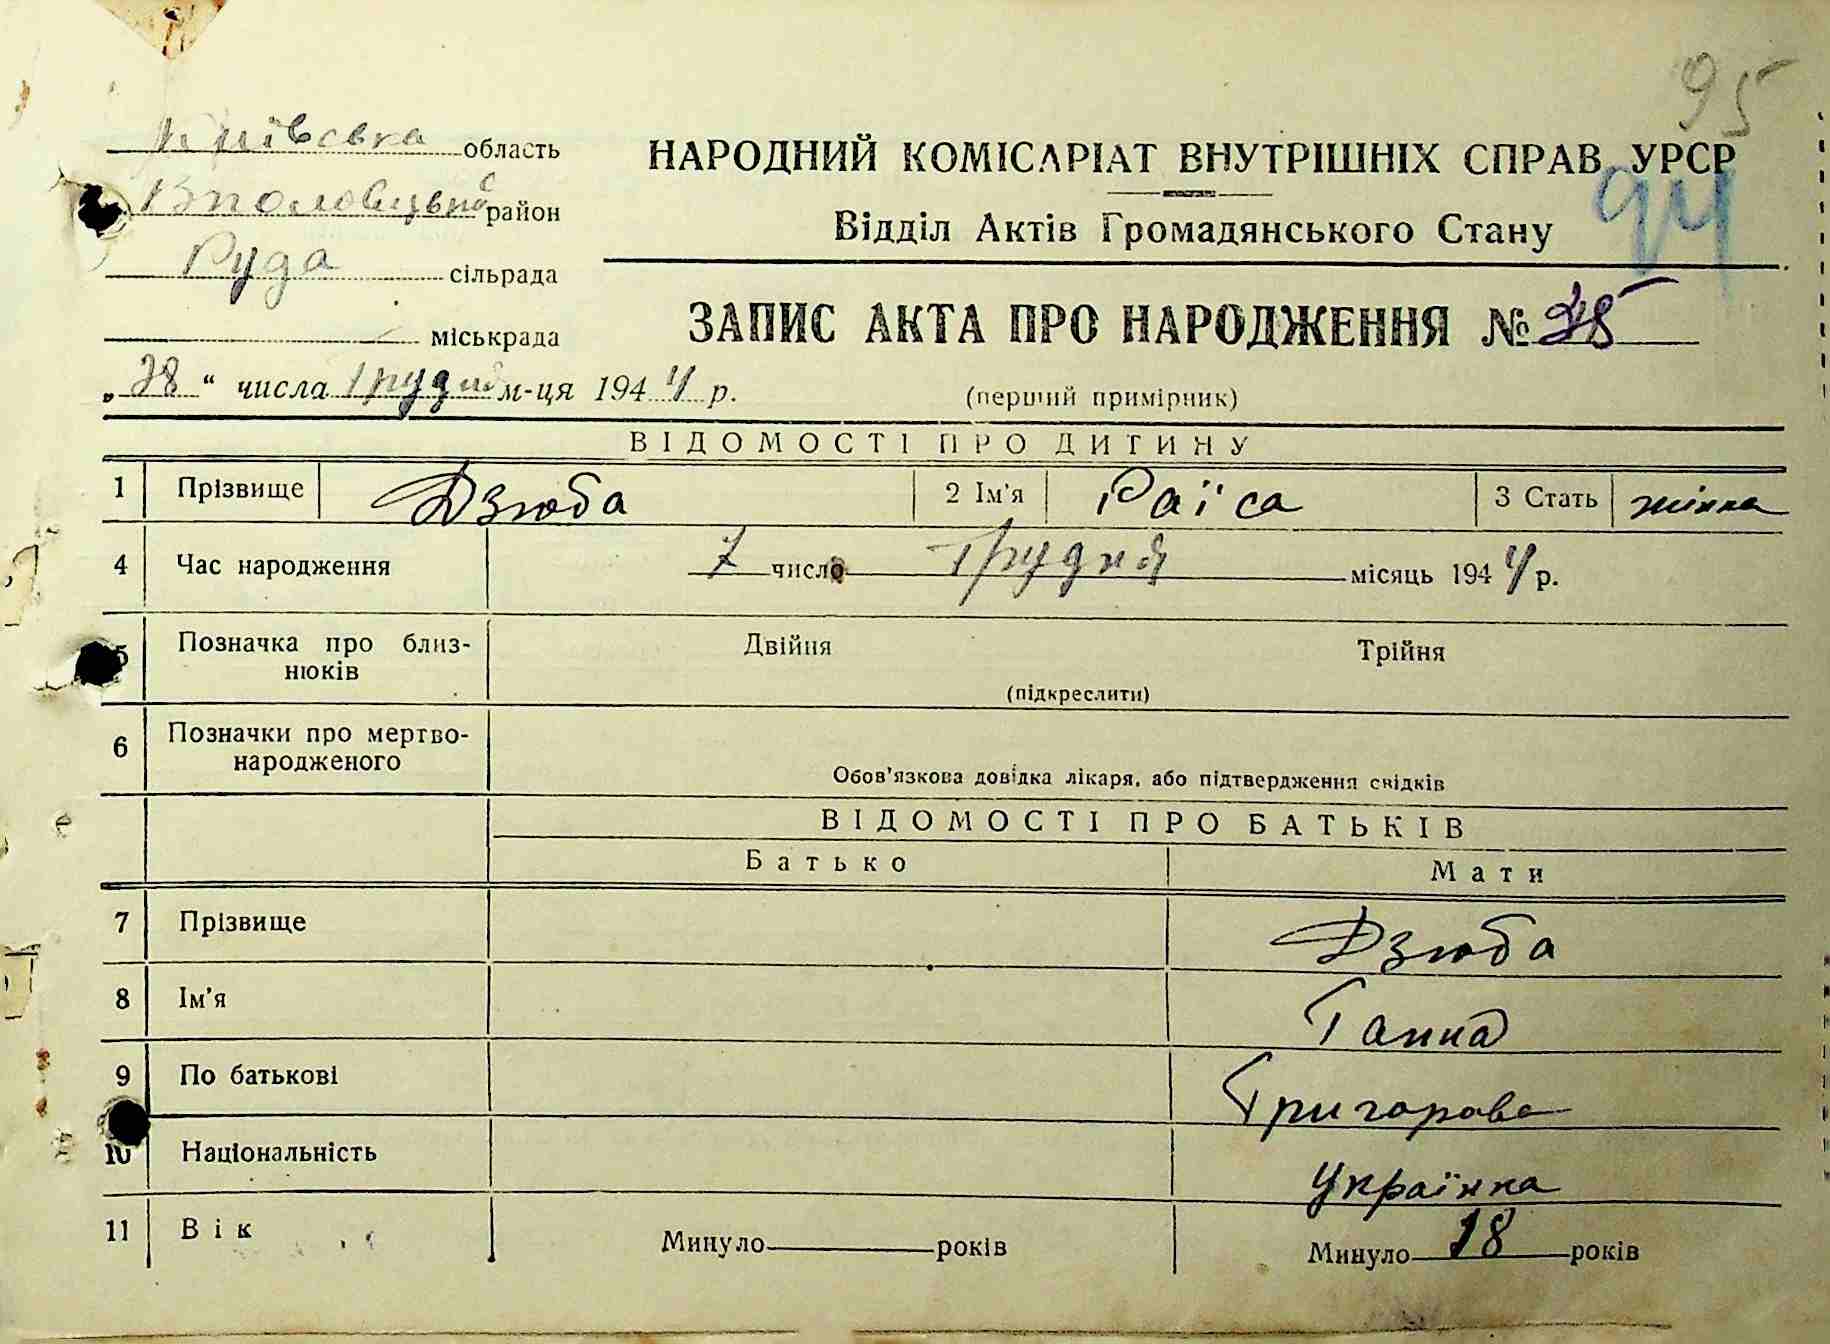 95
Київська область
НАРОДНИЙ КОМІСАРІАТ ВНУТРІШНІХ СПРАВ УРСР
94
район
Відділ Актів Громадянського Стану
Руда сільрада
ЗАПИС АКТА ПРО НАРОДЖЕННЯ №
міськрада
„28“ числа Грудня м-ця 1944 р.
(перший примірник)
ВІДОМОСТІ ПРО ДИТИНУ
1 Прізвище Дзюба 2 Ім'я Раїса 3 Стать жінка
4 Час народження 7 число Грудня місяць 1944 р.
5 Позначка про близ-
нюків
Двійня Трійня
(підкреслити)
6 Позначки про мертво-
народженого
Обов'язкова довідка лікаря, або підтвердження свідків
ВІДОМОСТІ ПРО БАТЬКІВ
Батько Мати
7 Прізвище Дзюба
8 Ім'я Ганна
9 По батькові Григорова
10 Національність Українка
11 Вік Минуло років Минуло 18 років